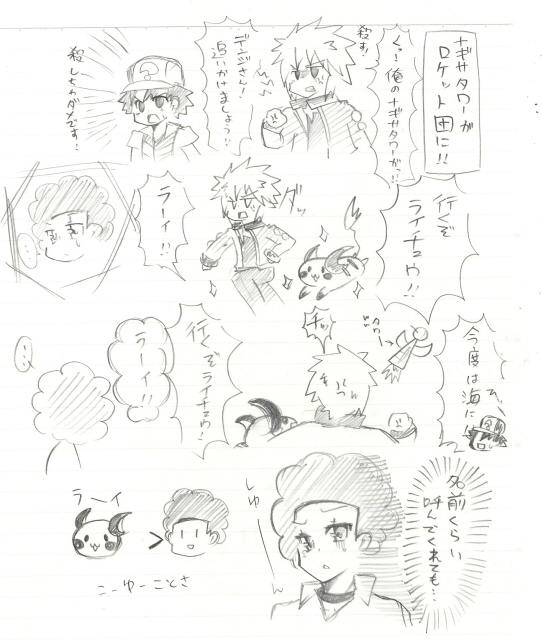 ナギサタワーが
ロケット団に!!
殺す!
くっ!俺の
ナギサタワーがっ!!
デンジさん!
追いかけましょう!!
殺しちゃダメです!
行くぞ
ライチュウ!!
ダッ
ラーイ!!
・・・
今度は海に!
タワー→
チッ
行くぞ
ライチュウ!
ラーイ!!
・・・
名前くらい
呼んでくれても…
しゅん
ラーイ
>
こーゆーことさ